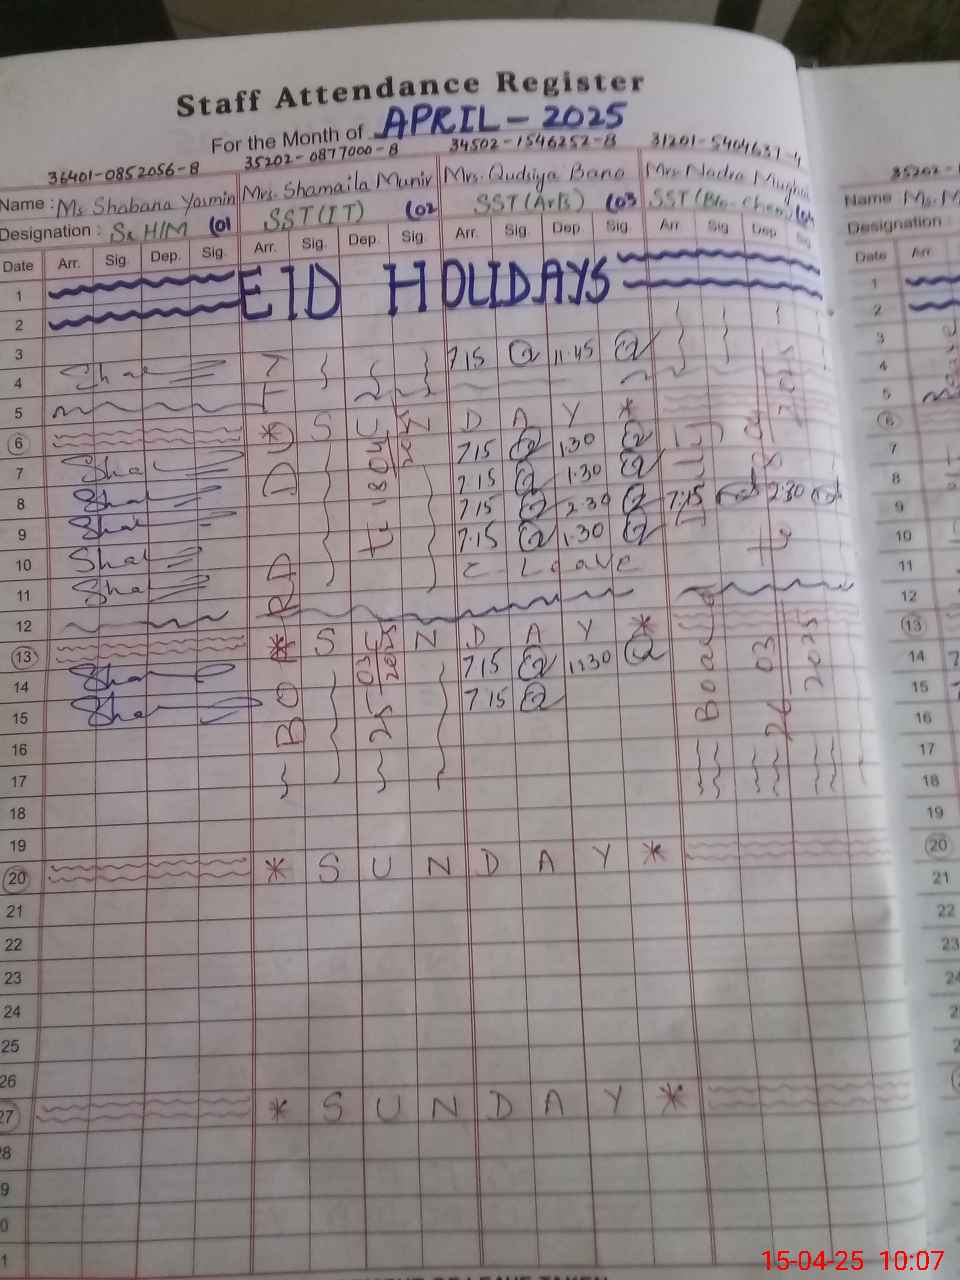 Staff Attendance Register
For the Month of APRIL - 2025
36401-0852056-8 35202-0877000-8 34502-1546252-8 31201-5404631-4
Name : Ms Shabana Yasmin Mrs. Shamaila Munir Mrs. Qudsiya Bano Mrs Nadra Mughal
Designation : Sr H/M (01 SST (IT) (02 SST (Arts) (03 SST
Date Arr. Sig. Dep. Sig. Arr. Sig. Dep. Sig. Arr. Sig. Dep. Sig. Arr. Sig. Dep. Sig
1 EID HOLIDAYS
2
3
4 7.15 11.45
5
6 * S U N D A Y *
7 7.15 1.30
8 7.15 1.30
9 7.15 2.30 7:15 2:30
10 7.15 1.30
11 C - Leave
12
13 * S U N D A Y *
14 7.15 1.30
15 7.15
16
17
18
19
20 * S U N D A Y *
21
22
23
24
25
26
27 * S U N D A Y *
28
29
30
31
BOARD DUTY
25-03-2025 to 18-04-2025
Board Duty
26 03 2025 to
35202-
Name : Ms. M
Designation :
Date Arr
1
2
3
4
5
6
7
8
9
10
11
12
13
14 7
15
16
17
18
19
20
21
22
23
24
15-04-25 10:07